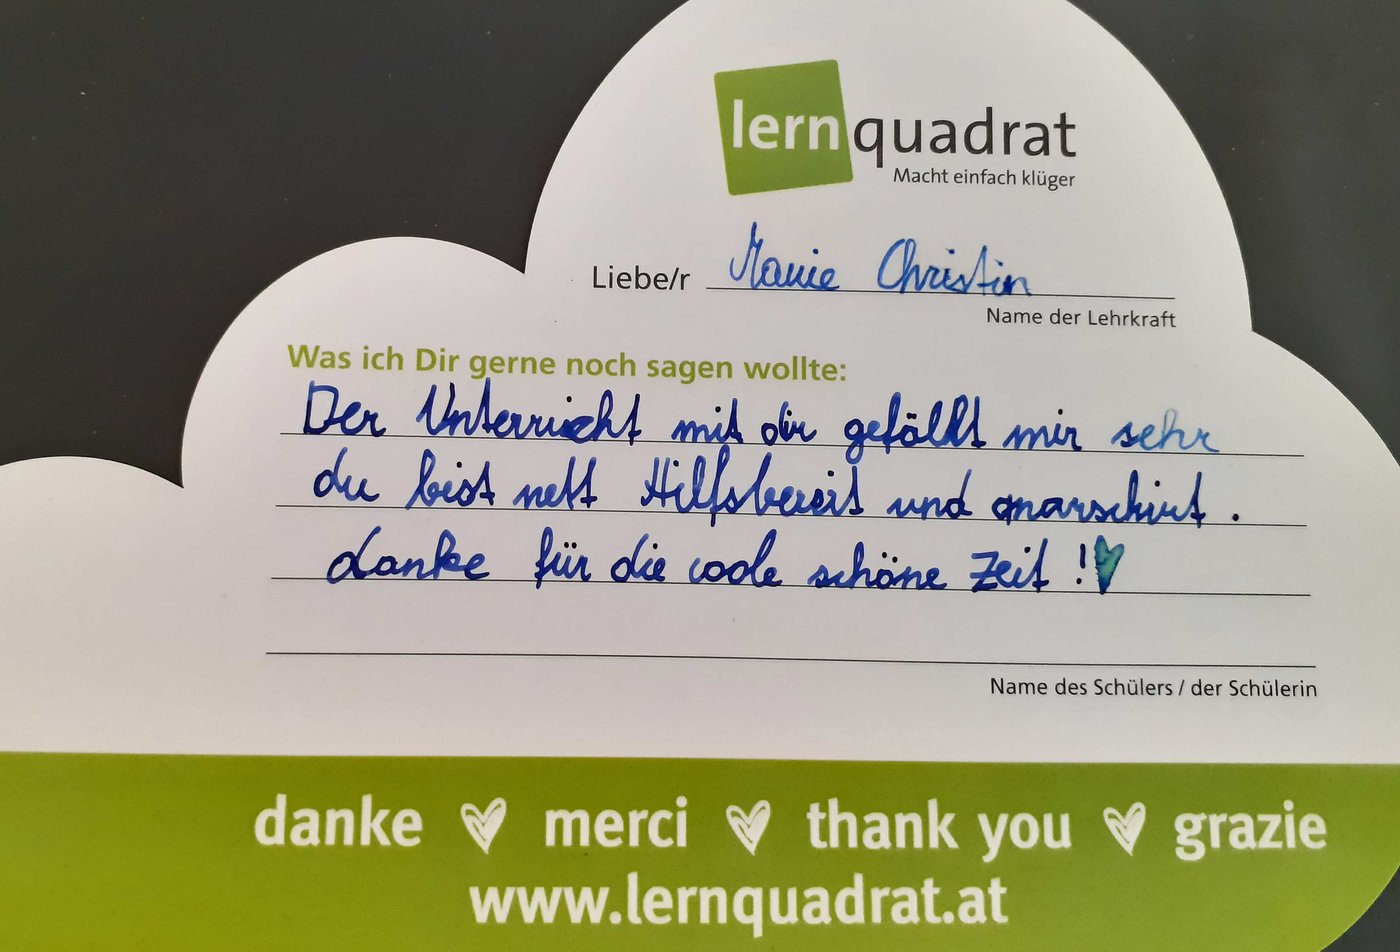 lernquadrat
Macht einfach klüger
Liebe/r Marie Christin
Name der Lehrkraft
Was ich Dir gerne noch sagen wollte:
Der Unterricht mit dir gefällt mir sehr
du bist nett Hilfsbereit und
danke für die coole schöne Zeit !
Name des Schülers / der Schülerin
danke merci thank you grazie
www.lernquadrat.at